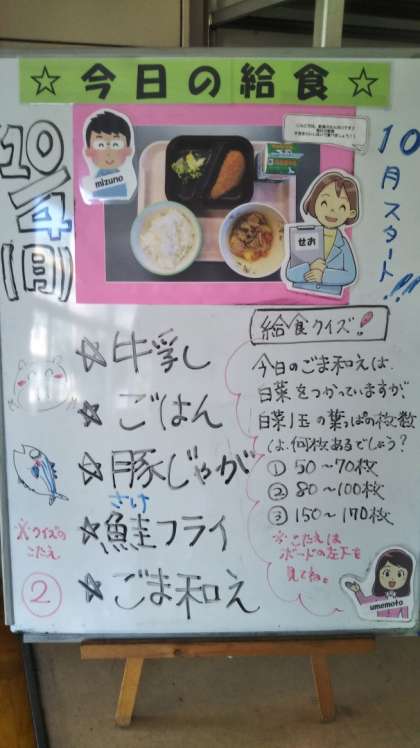 ☆今日の給食☆
10/4(月)
10月スタート!!
mizuno
せお
☆牛乳し
☆ごはん
☆豚じゃが
さけ
☆鮭フライ
☆ごま和え
給食クイズ!
今日のごま和えは、
白菜をつかっていますが、
白菜1玉の葉っぱの枚数
は、何枚あるでしょう?
① 50~70枚
② 80~100枚
③ 150~170枚
※こたえは
ボードの左下を
見てね。
umemoto
※クイズの
こたえ
②